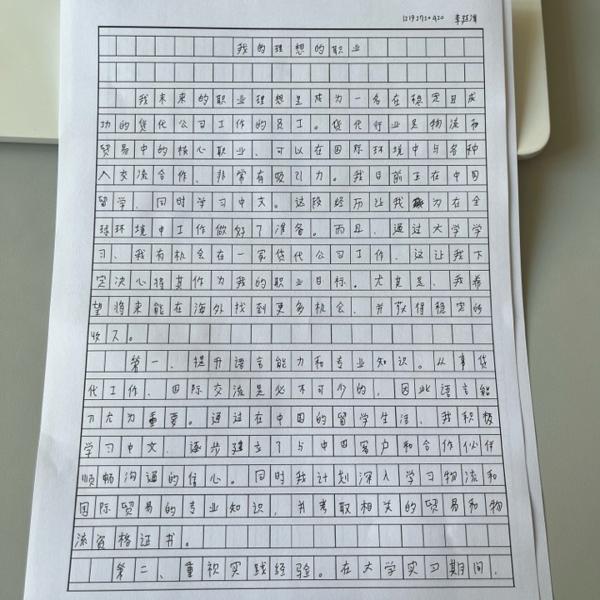 12192720420 李
我的理想的职业
我未来的职业理想是成为一名在稳定且成
功的货代公司工作的员工。货代行业是物流和
贸易中的核心职业，可以在国际环境中与各种
人交流合作，非常有吸引力。我目前正在中国
留学，同时学习中文。这段经历让我为在全
球环境中工作做好了准备。而且，通过大学学
习，我有机会在一家货代公司工作，这让我下
定决心将其作为我的职业目标。尤其是，我希
望将来能在海外找到更多机会，并获得稳定的
收入。
第一、提升语言能力和专业知识。从事货
代工作，国际交流是必不可少的，因此语言能
力尤为重要。通过在中国的留学生活，我积极
学习中文，逐步建立了与中国客户和合作伙伴
顺畅沟通的信心。同时我计划深入学习物流和
国际贸易的专业知识，并考取相关的贸易和物
流资格证书。
第二、重视实践经验。在大学实习期间，